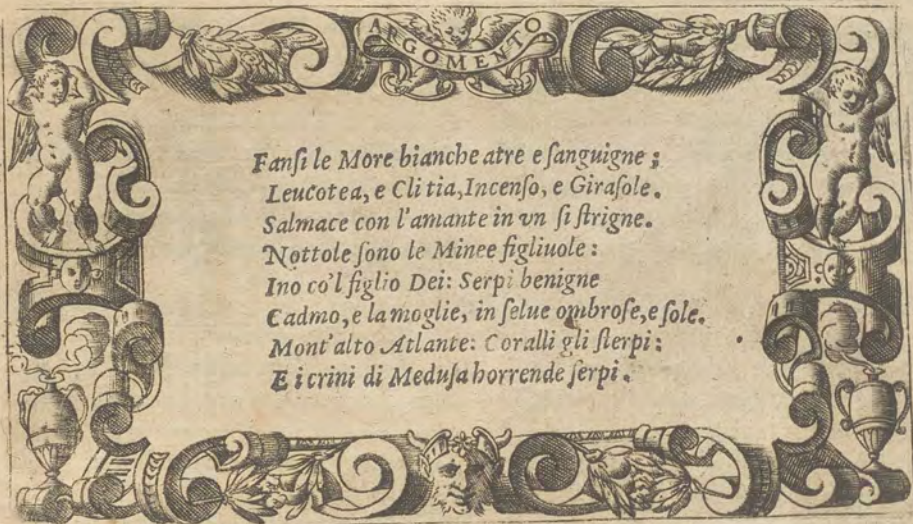 ARGOMENTO
Fanſi le More bianche atre e ſanguigne;
Leucotea, e Cli tia, Incenſo, e Giraſole.
Salmace con l'amante in vn ſi ſtrigne.
Nottole ſono le Minee figliuole:
Ino co'l figlio Dei: Serpi benigne
Cadmo, e la moglie, in ſelue ombroſe, e ſole.
Mont'alto Atlante: Coralli gli ſterpi:
E i crini di Meduſa horrende ſerpi.